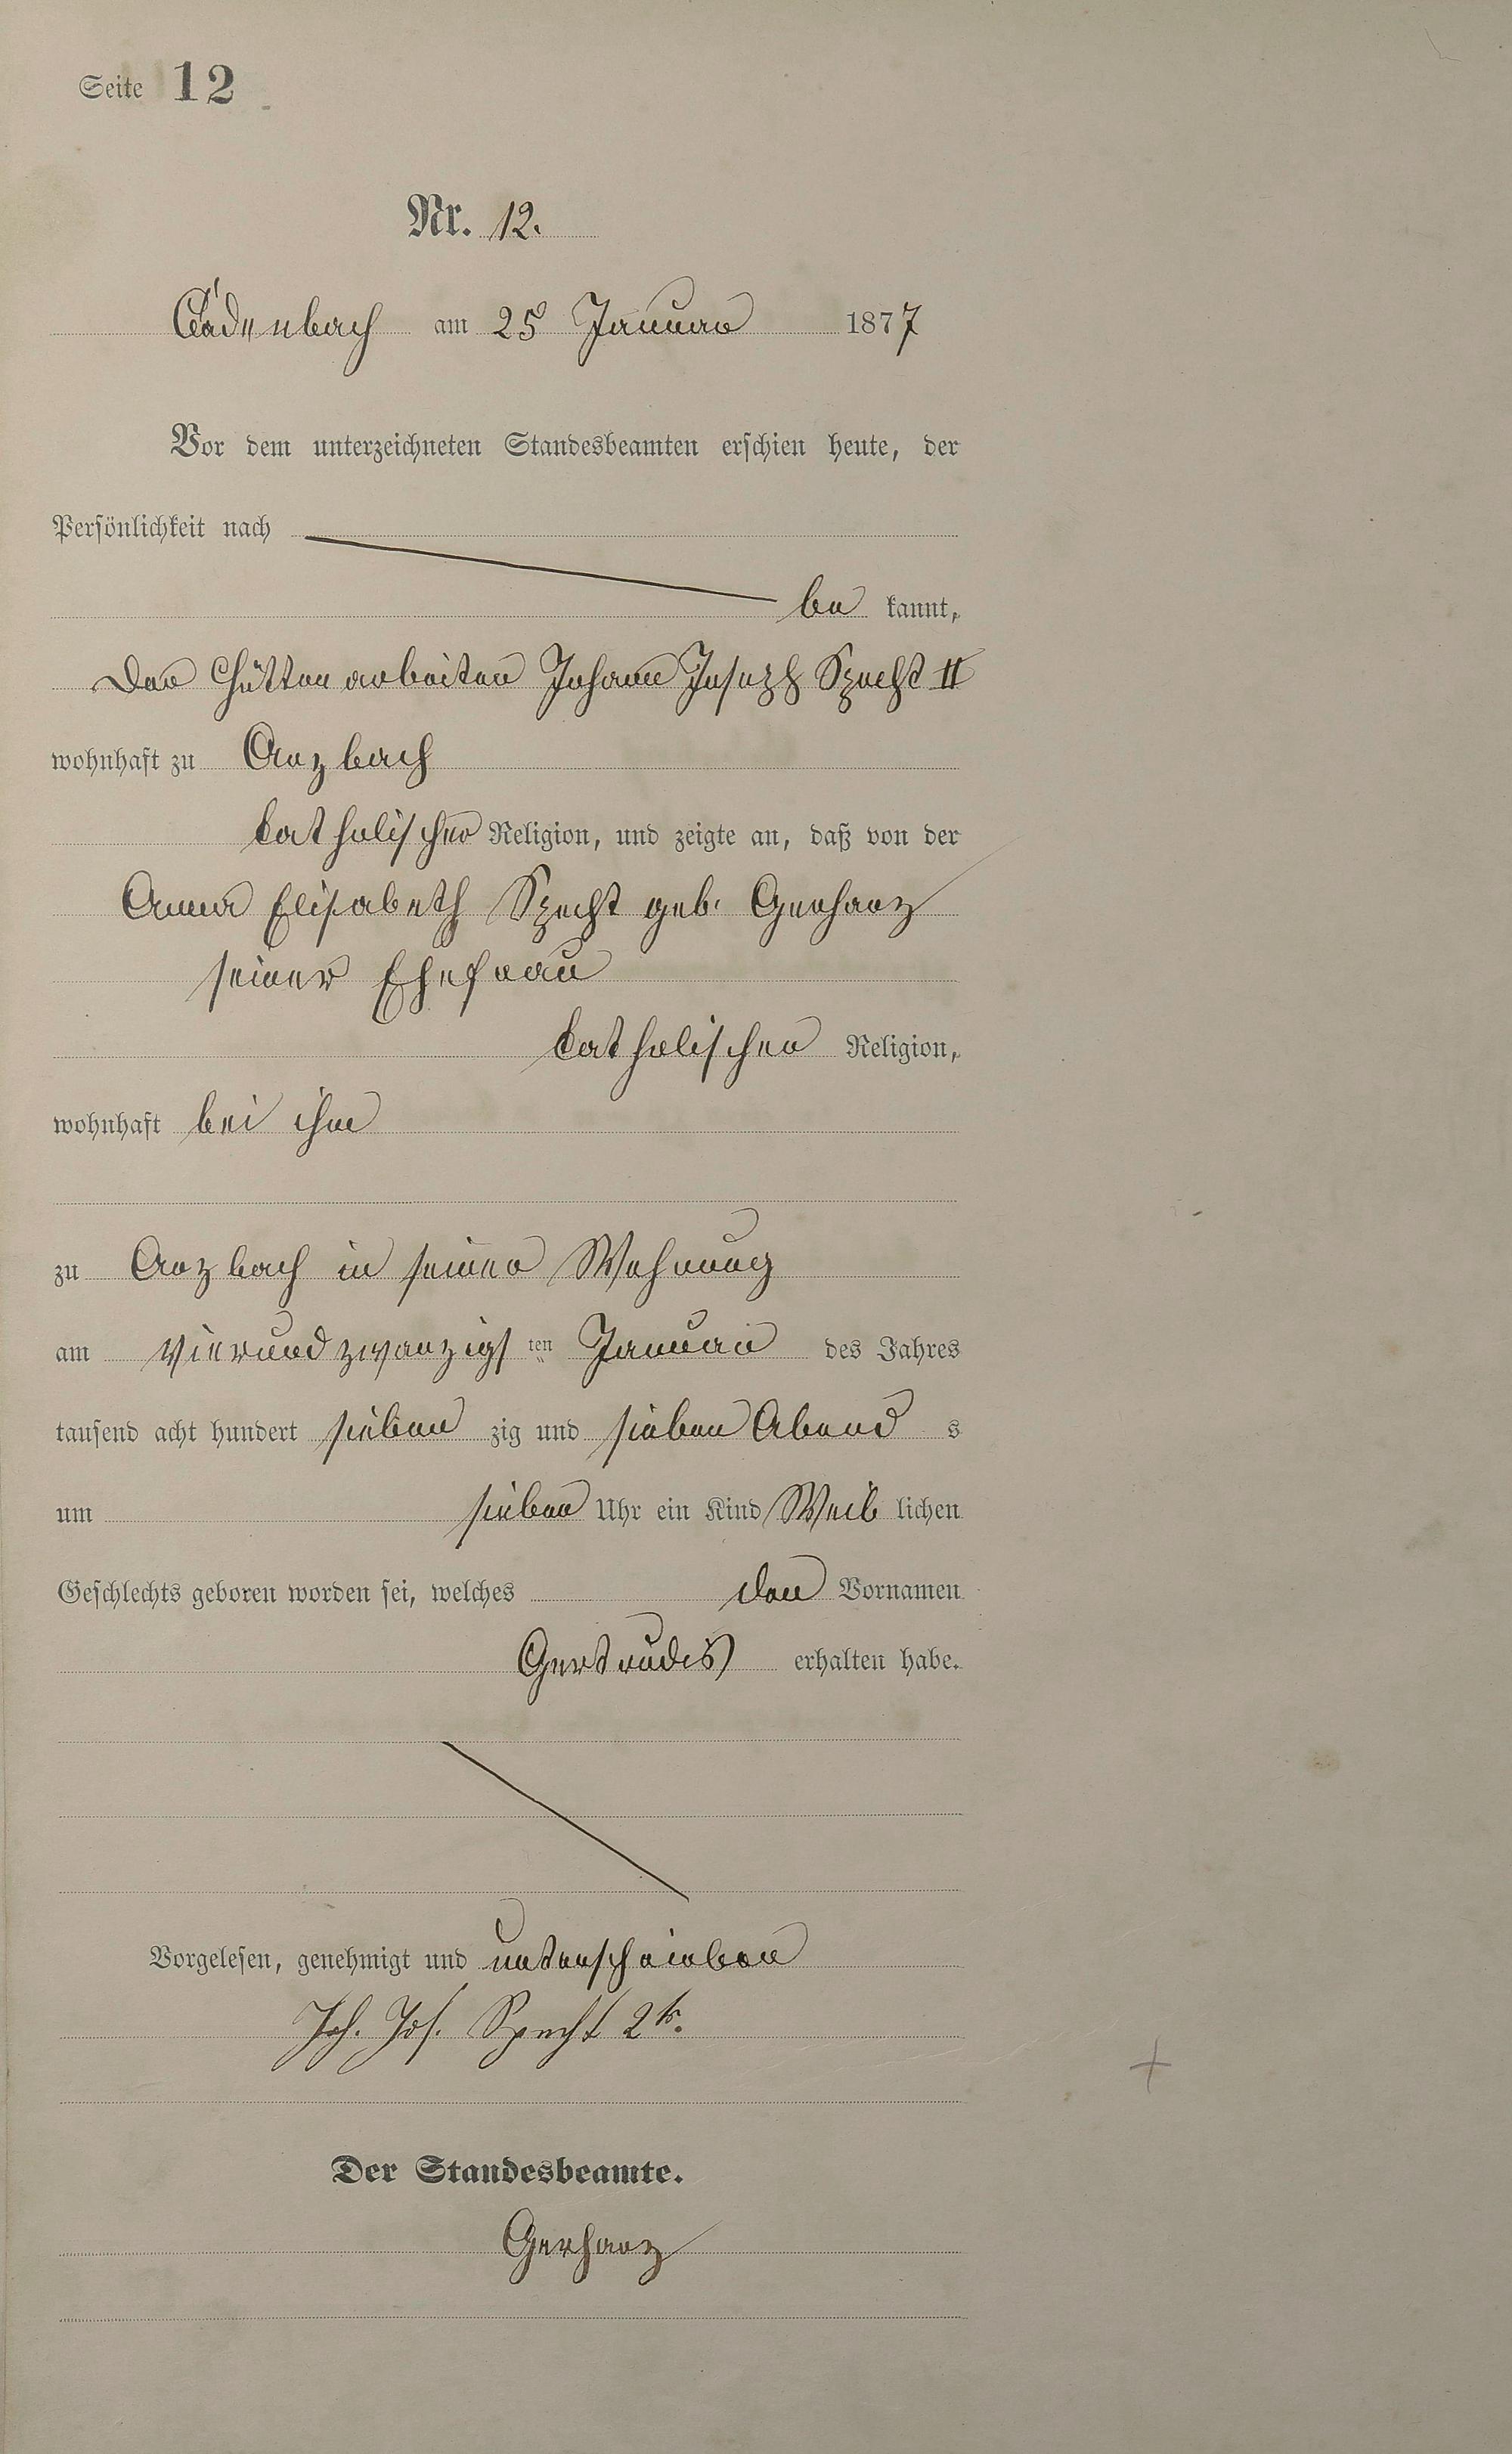 Seite 12
Nr. 12.
Cadenbach am 25 Januar 1877
Vor dem unterzeichneten Standesbeamten erschien heute, der
Persönlichkeit nach
be kannt,
Der Hüttenarbeiter Johann Joseph Specht II
wohnhaft zu Arzbach
katholischer Religion, und zeigte an, daß von der
Anna Elisabeth Specht geb. Gerharz
seiner Ehefrau
katholischer Religion,
wohnhaft bei ihm
zu Arzbach in seiner Wohnung
am vierundzwanzigs ten Januar des Jahres
tausend acht hundert sieben zig und sieben Abend s
um sieben Uhr ein Kind Weib lichen
Geschlechts geboren worden sei, welches den Vornamen
Gertrudis erhalten habe.
Vorgelesen, genehmigt und unterschrieben
Joh. Jos. Specht 2tr.
Der Standesbeamte.
Gerharz